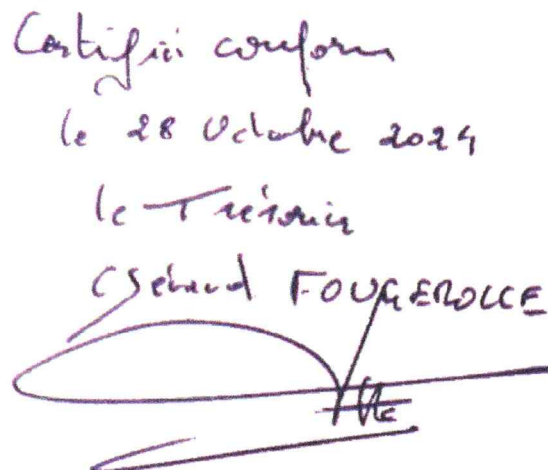 Certifié conforme
le 28 Octobre 2024
le Trésorier
Gérard FOUGEROLLE